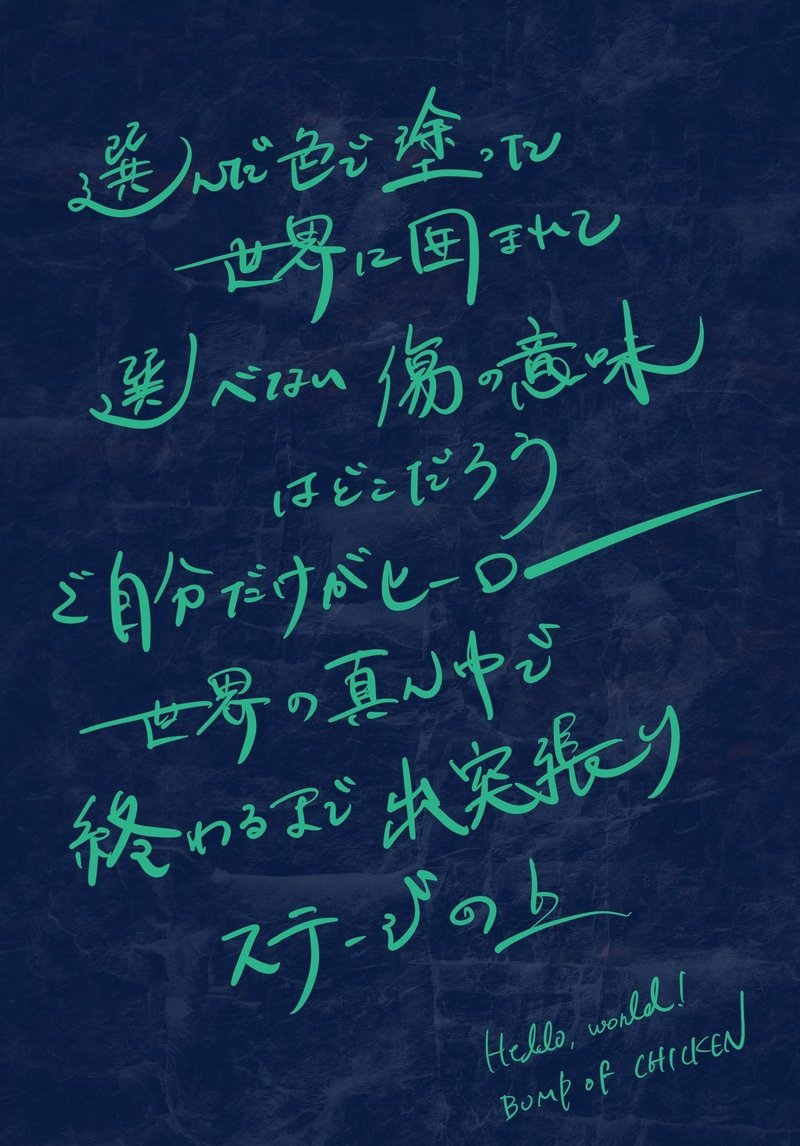 選んだ色で塗った
世界に囲まれて
選べない傷の意味
はどこだろう
ご自分だけがヒーロー
世界の真ん中で
終わるまで出突張り
ステージの上
Hello, world!
BUMP OF CHICKEN